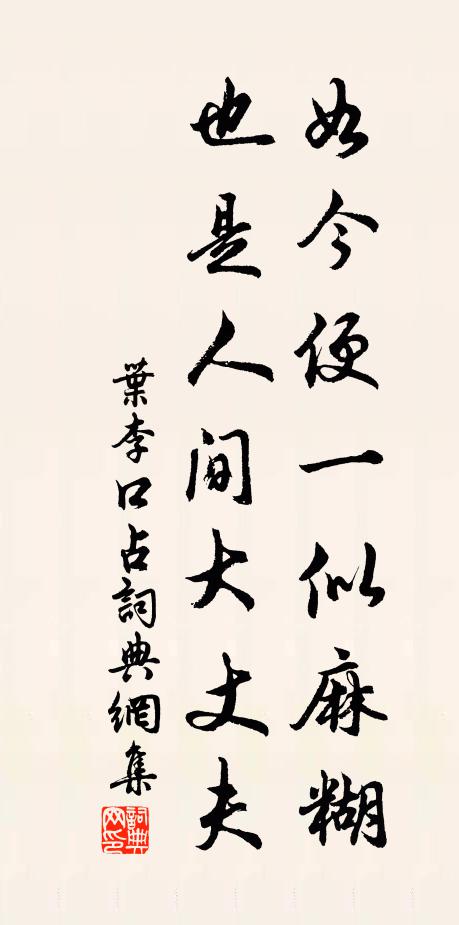 如今便一似麻糊
也是人间大丈夫
葉李口占詞典網集
詞典
网印